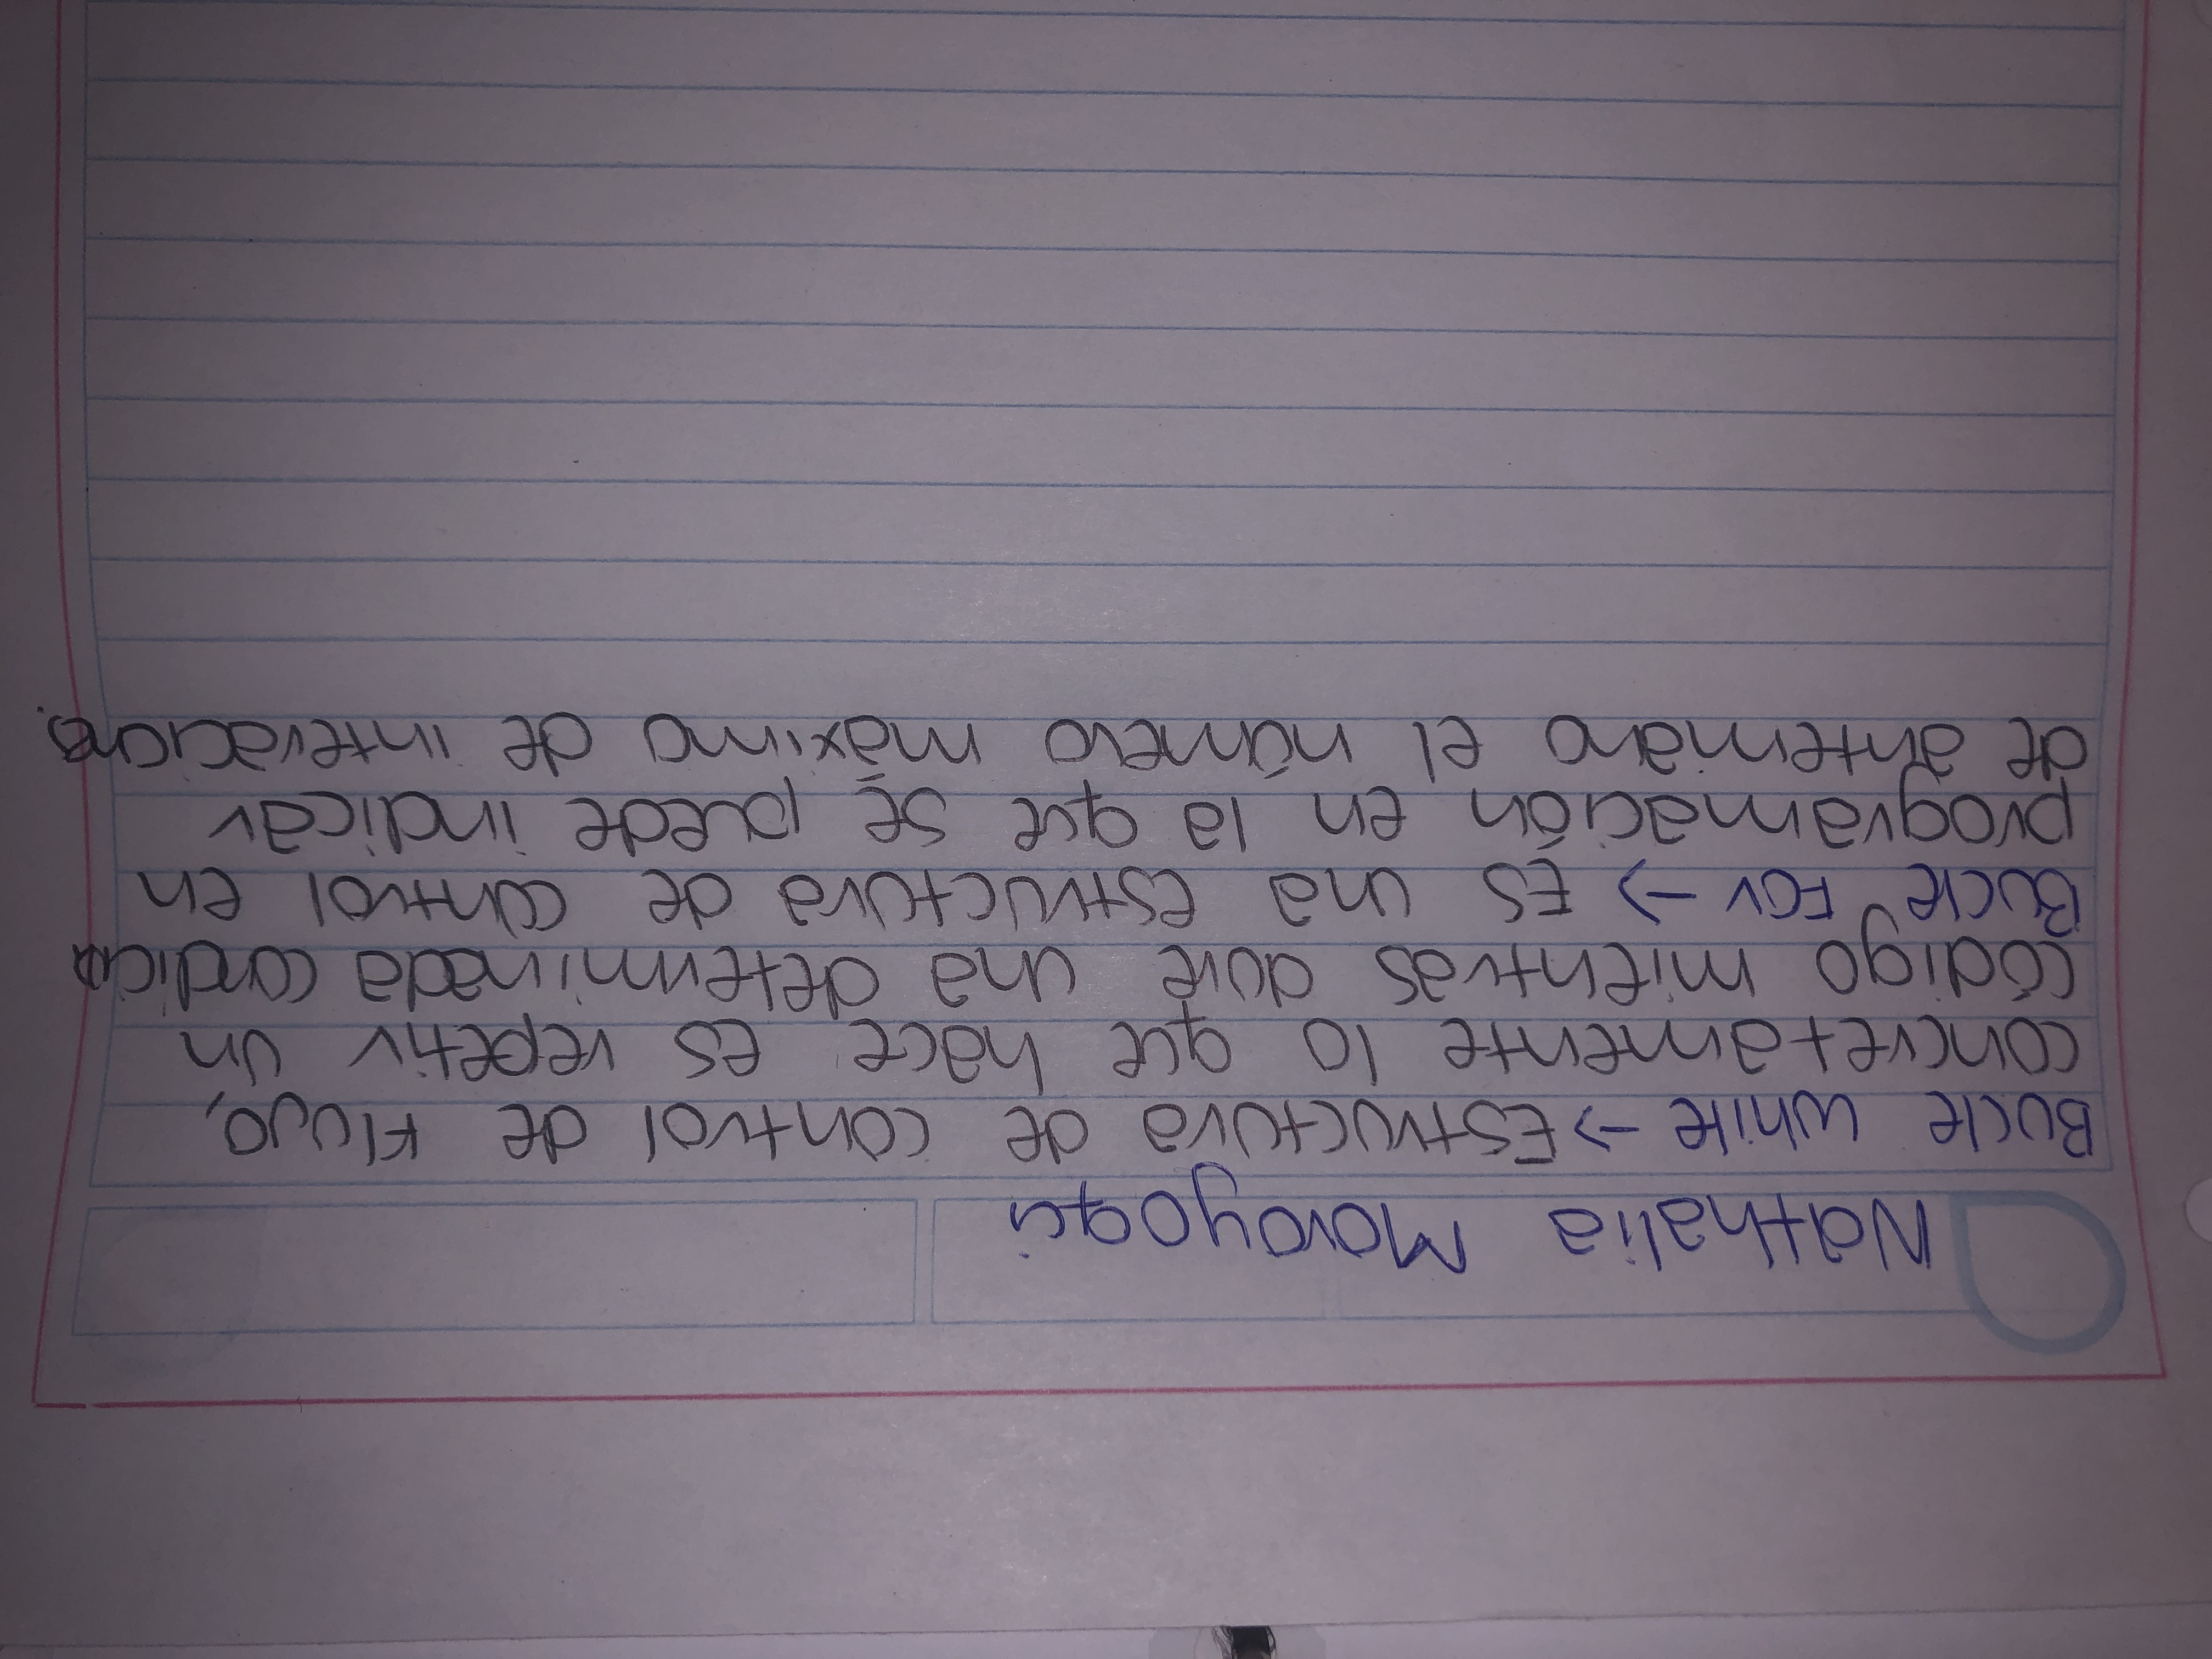 Nathalia Moroyoqui
Bucle while → Estructura de control de Flujo,
concretamente lo que hace, es repetir un
código mientras dure una determinada condición
Bucle For → Es una estructura de control en
programación en la que se puede indicar
de antemano el número máximo de interacions.